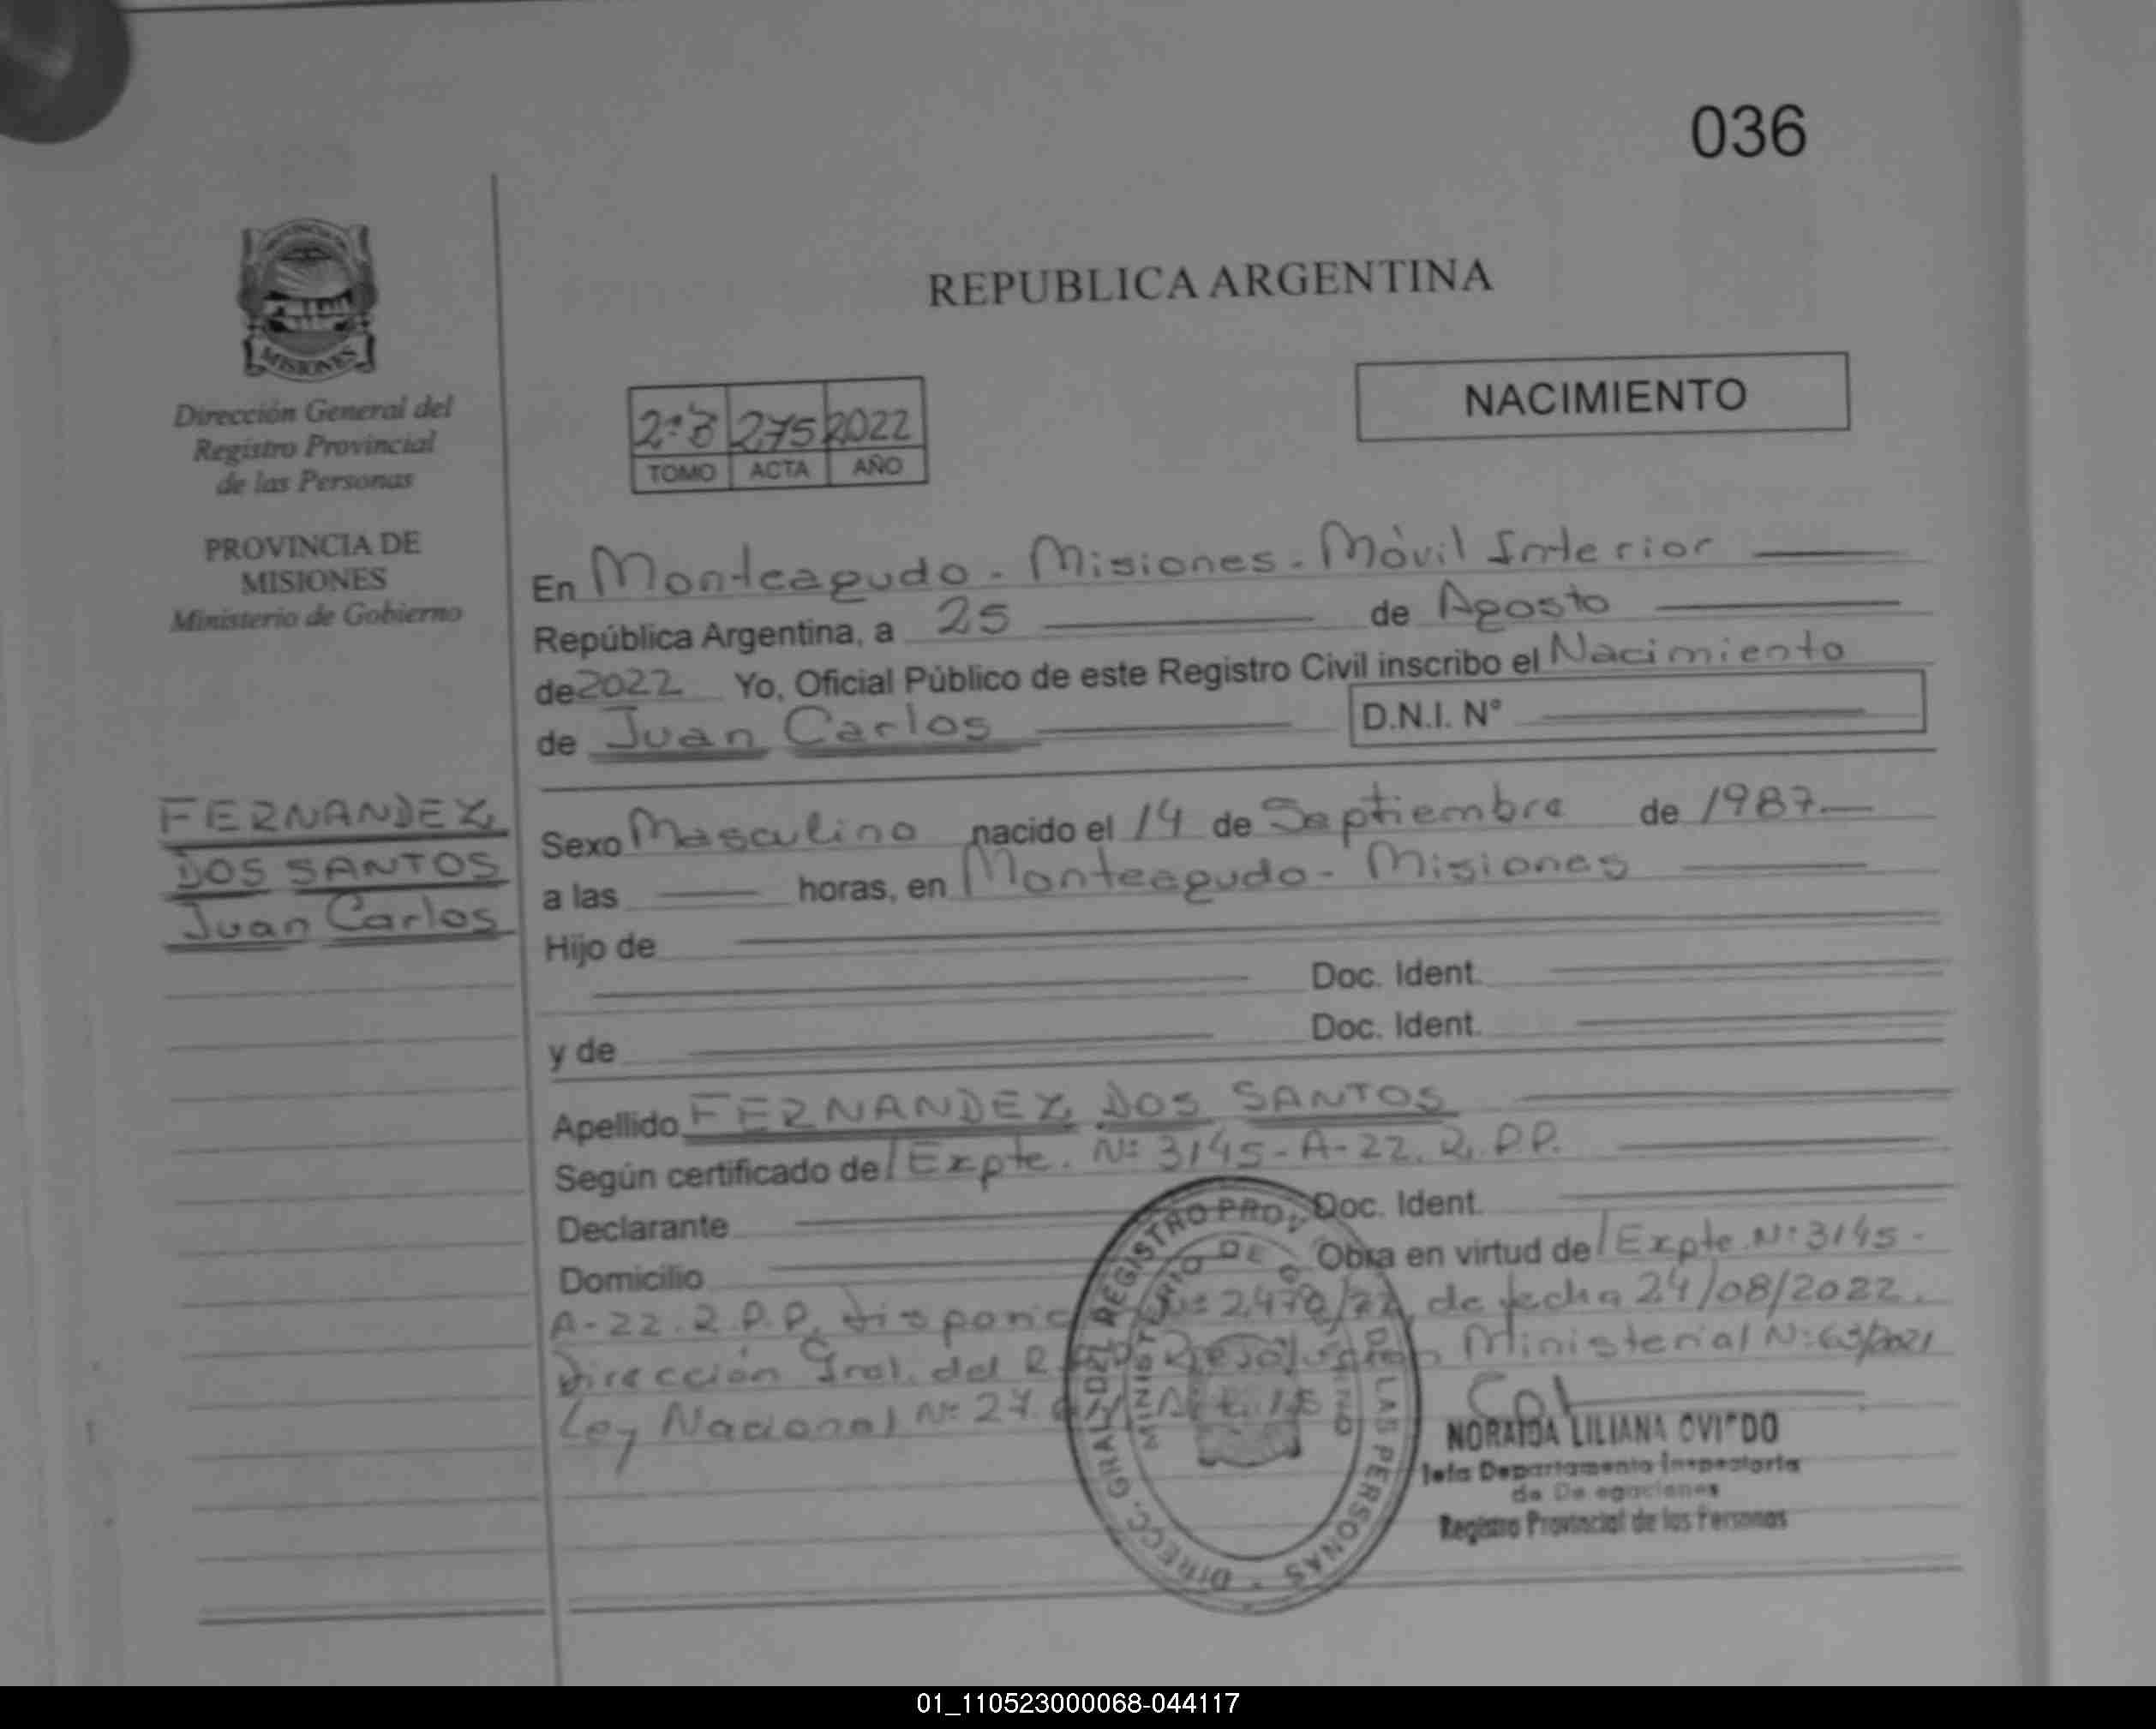 036
MISIONES
Dirección General del
Registro Provincial
de las Personas
PROVINCIA DE
MISIONES
Ministerio de Gobierno
REPUBLICA ARGENTINA
NACIMIENTO
2º3 275 2022
TOMO ACTA AÑO
En Monteagudo - Misiones - Móvil Interior
República Argentina, a 25 de Agosto
de 2022 Yo, Oficial Público de este Registro Civil inscribo el Nacimiento
de Juan Carlos D.N.I. N°
FERNANDEZ,
DOS SANTOS
Juan Carlos
Sexo Masculino nacido el 14 de Septiembre de 1987.
a las horas, en Monteagudo - Misiones
Hijo de
Doc. Ident.
y de Doc. Ident.
Apellido FERNANDEZ, DOS SANTOS
Según certificado de/Expte. Nº 3145-A-22. R.P.P.
Declarante Doc. Ident.
Domicilio Obra en virtud de/Expte. Nº 3145-
A-22. R.P.P. de fecha 24/08/2022.
Dirección Gral. del Resolución Ministerial Nº 63/2021
Ley Nacional Nº 27. Art. 15
DIRECC. GRAL. DEL REGISTRO PROV. DE LAS PERSONAS
MINISTERIO DE GOBIERNO
NORAIDA LILIANA OVIEDO
Jefa Departamento Inspectoria
de Delegaciones
Registro Provincial de las Personas
01_110523000068-044117